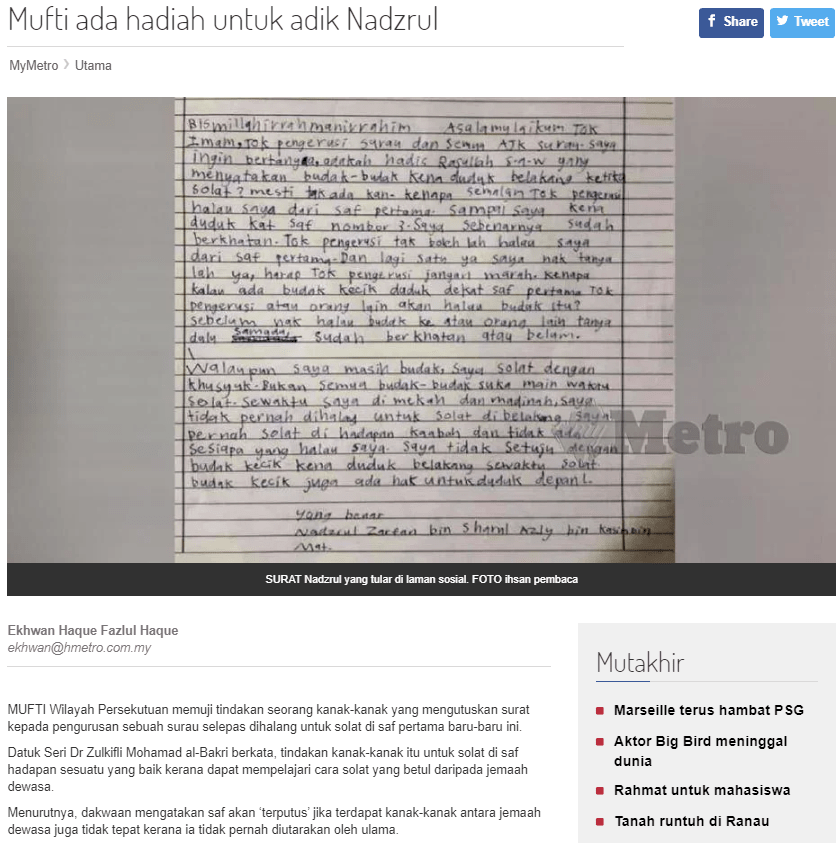 Mufti ada hadiah untuk adik Nadzrul
Share
Tweet
MyMetro > Utama
Bismillahirrahmanirrahim Asalamulaikum Tok
Imam, Tok pengerusi surau dan semua AJK surau. saya
ingin bertanya, adakah hadis Rasullah S.A.W yang
menyatakan budak-budak kena duduk belakang ketika
solat? mesti tak ada kan. kenapa semalam Tok pengerusi
halau saya dari saf pertama. Sampai saya kena
duduk kat saf nombor 3. Saya sebenarnya sudah
berkhatan. Tok pengerusi tak boleh lah halau saya
dari saf pertama. Dan lagi satu ya saya nak tanya
lah ya, harap Tok pengerusi jangan marah. kenapa
kalau ada budak kecik duduk dekat saf pertama Tok
pengerusi atau orang lain akan halau budak itu?
sebelum nak halau budak ke atau orang lain tanya
dulu samada, sudah berkhatan atau belum.
Walaupun saya masih budak, saya solat dengan
khusyuk. Bukan semua budak-budak suka main waktu
solat. sewaktu saya di mekah dan madinah, saya
tidak pernah dihalau untuk solat di belakang. saya
pernah solat di hadapan kaabah dan tidak ada
sesiapa yang halau saya. Saya tidak setuju dengan
budak kecik kena duduk belakang sewaktu solat
budak kecik juga ada hak untuk duduk depan!.
Yang benar
Nadzrul Zarean bin Sharul Azly bin Kasim bin
Mat.
my Metro
SURAT Nadzrul yang tular di laman sosial. FOTO ihsan pembaca
Ekhwan Haque Fazlul Haque
ekhwan@hmetro.com.my
MUFTI Wilayah Persekutuan memuji tindakan seorang kanak-kanak yang mengutuskan surat
kepada pengurusan sebuah surau selepas dihalang untuk solat di saf pertama baru-baru ini.
Datuk Seri Dr Zulkifli Mohamad al-Bakri berkata, tindakan kanak-kanak itu untuk solat di saf
hadapan sesuatu yang baik kerana dapat mempelajari cara solat yang betul daripada jemaah
dewasa.
Menurutnya, dakwaan mengatakan saf akan ‘terputus’ jika terdapat kanak-kanak antara jemaah
dewasa juga tidak tepat kerana ia tidak pernah diutarakan oleh ulama.
Mutakhir
Marseille terus hambat PSG
Aktor Big Bird meninggal
dunia
Rahmat untuk mahasiswa
Tanah runtuh di Ranau